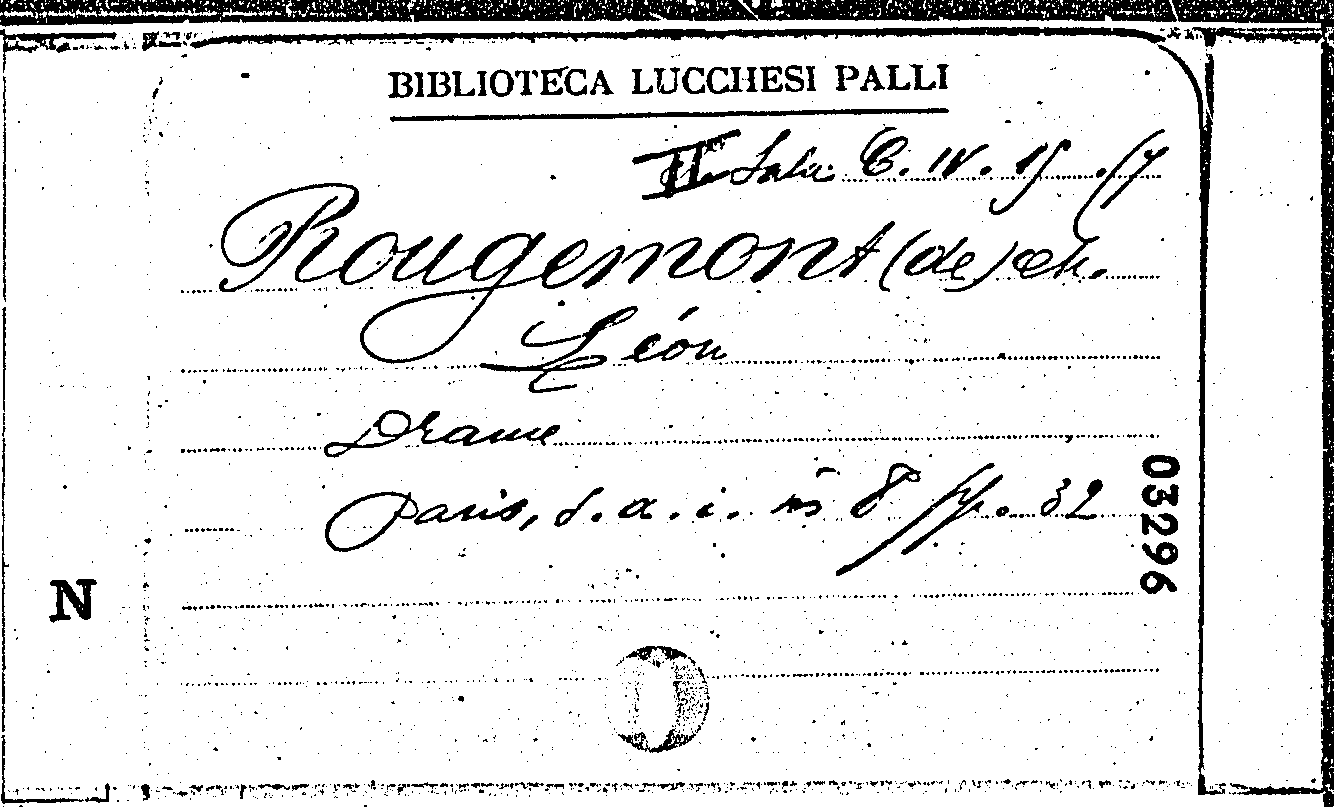 BIBLIOTECA LUCCHESI PALLI
II Sala C. IV. 15 (7
Rougemont (de) ch.
Léon
Drame
Paris, s. a. i. in 8 pp. 32
03296
N